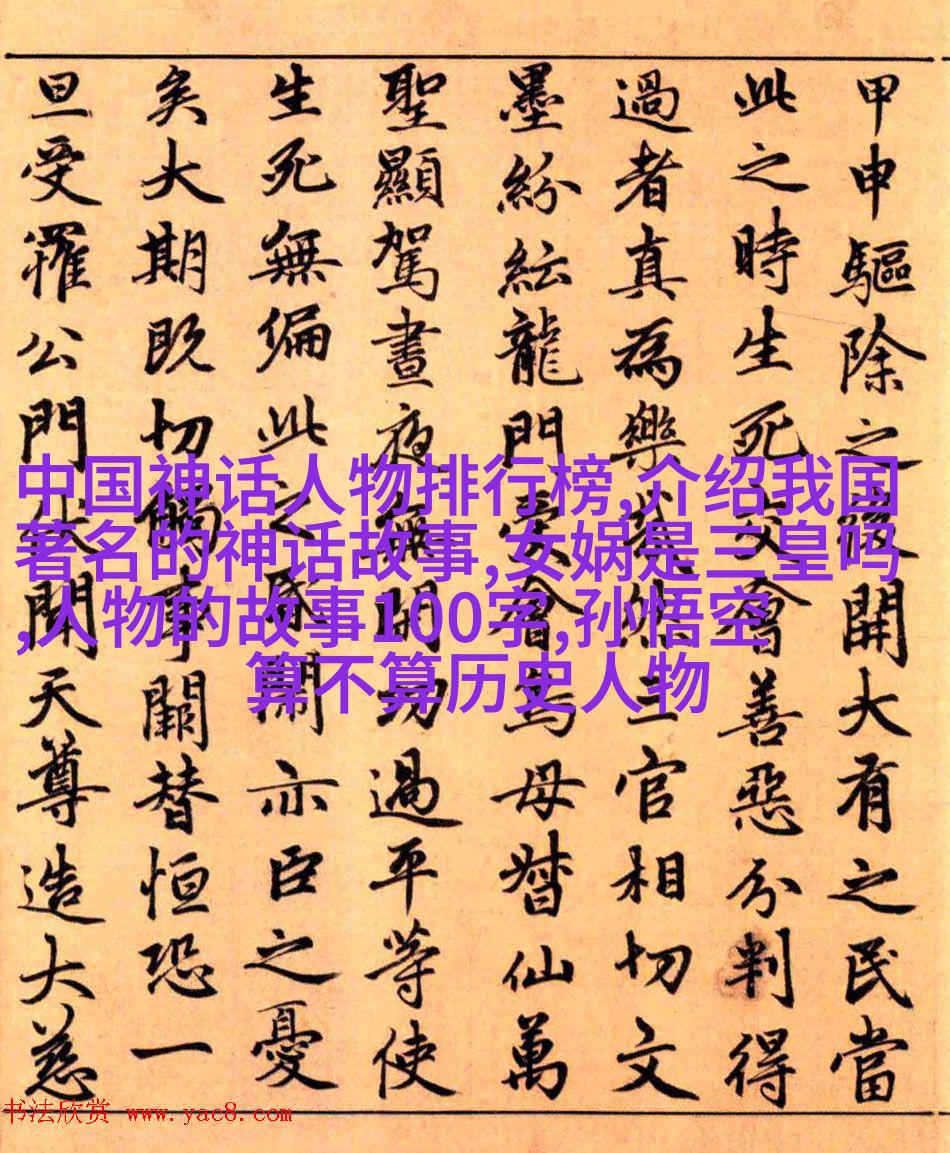 甲申驅除之後開大有之民當
此之時生死交會善惡分判得
過者真為樂哉然三官相切文
墨紛紜龍門受會鳥母督仙萬
聖顯駕晝夜無閒功過平等使
生死無偏此之昏閙亦臣之憂
矣大期既切觸事闕替恒恐一
旦受罹公門伏聞天尊造大慈
中国神话人物排行榜,介绍我国
著名的神话故事,女娲是三皇吗
,人物的故事100字,孙悟空
算不算历史人物
书法欣赏 www.yac8.com